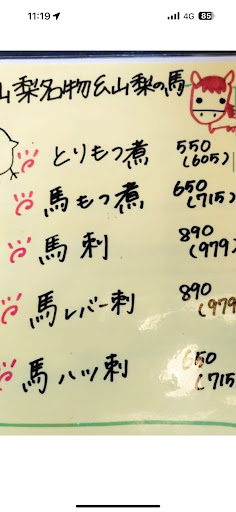 11:19
4G 85
山梨名物&山梨の馬
とりもつ煮 550 (605)
馬もつ煮 650 (715)
馬刺 890 (979)
馬レバー刺 890 (979
馬ハツ刺 650 (715